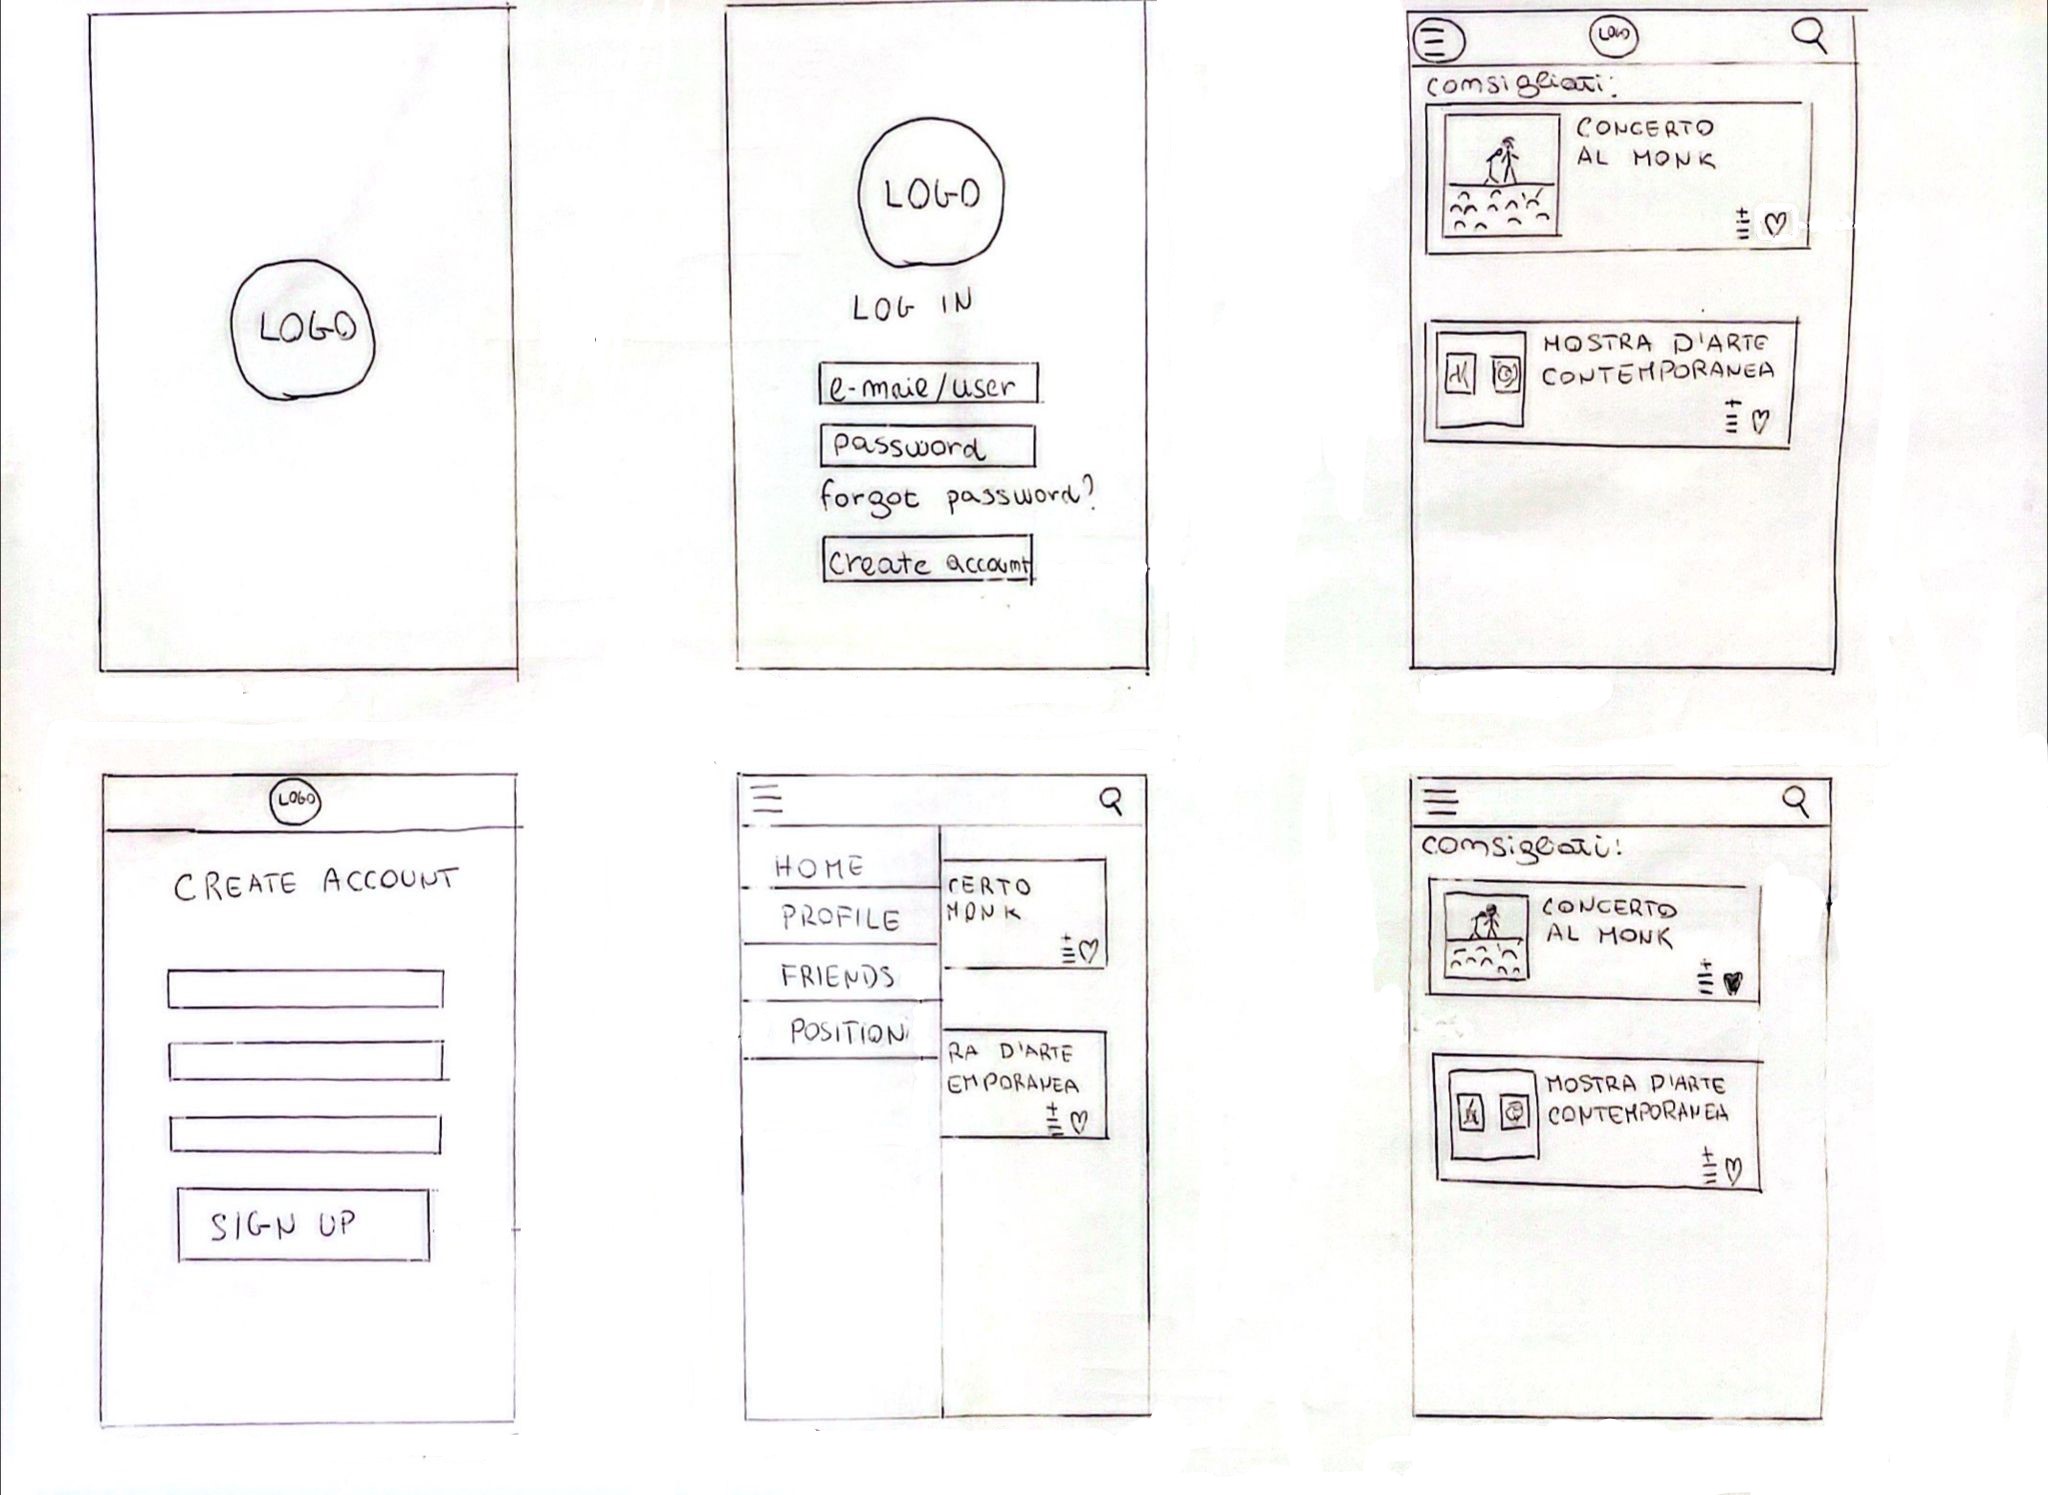 LOGO
LOGO
LOG IN
e-maie/user
password
forgot password?
create account
LOGO
consigliati:
CONCERTO
AL MONK
MOSTRA D'ARTE
CONTEMPORANEA
LOGO
CREATE ACCOUNT
SIGN UP
HOME
PROFILE
FRIENDS
POSITION
CERTO
MONK
RA D'ARTE
EMPORANEA
consigliati:
CONCERTO
AL MONK
MOSTRA D'ARTE
CONTEMPORANEA